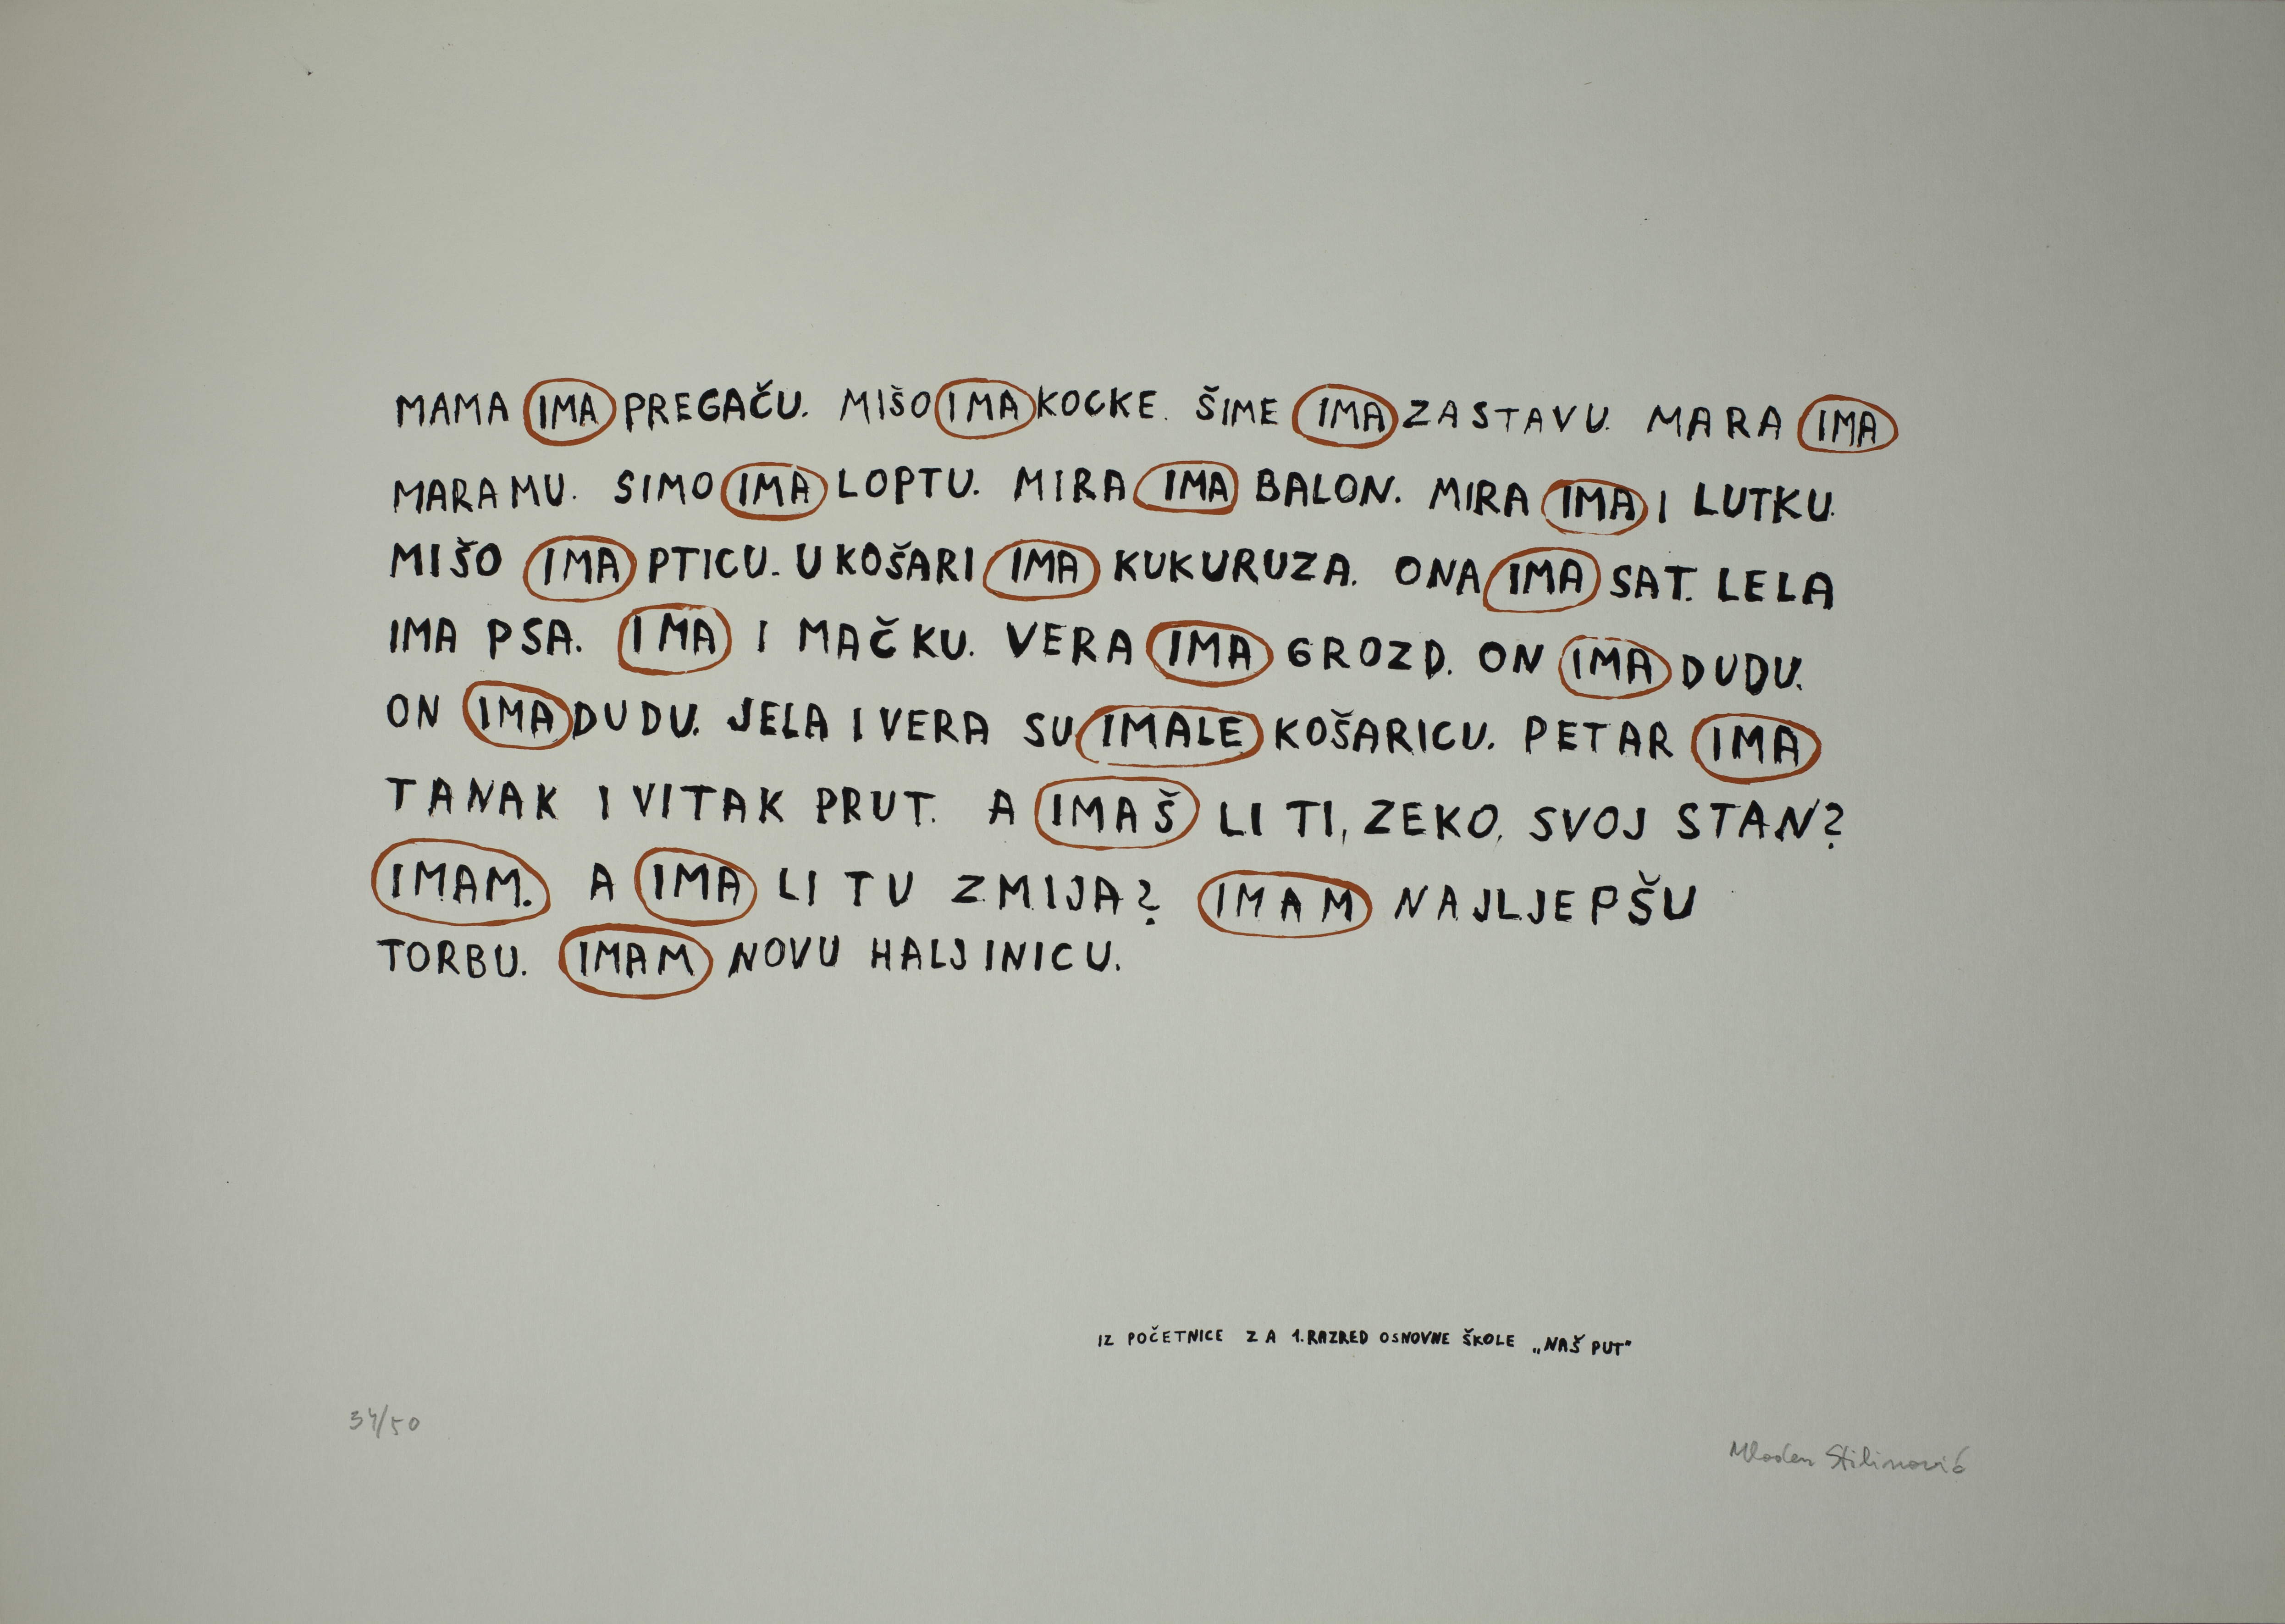 MAMA IMA PREGAČU. MIŠO IMA KOCKE. ŠIME IMA ZASTAVU. MARA IMA
MARAMU. SIMO IMA LOPTU. MIRA IMA BALON. MIRA IMA I LUTKU.
MIŠO IMA PTICU. U KOŠARI IMA KUKURUZA. ONA IMA SAT. LELA
IMA PSA. IMA I MAČKU. VERA IMA GROZD. ON IMA DUDU.
ON IMA DUDU. JELA I VERA SU IMALE KOŠARICU. PETAR IMA
TANAK I VITAK PRUT. A IMAŠ LI TI, ZEKO, SVOJ STAN?
IMAM. A IMA LI TU ZMIJA? IMAM NAJLJEPŠU
TORBU. IMAM NOVU HALJINICU.
IZ POČETNICE ZA 1. RAZRED OSNOVNE ŠKOLE „NAŠ PUT"
34/50
Mladen Stilinović